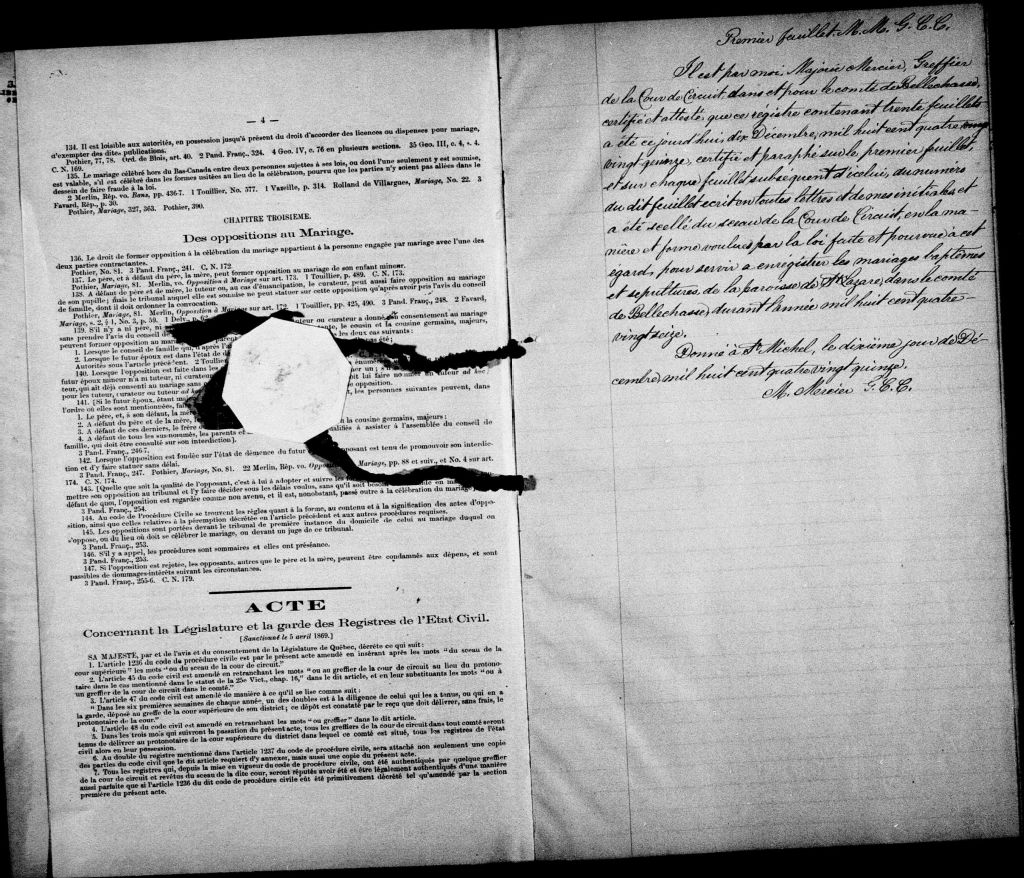 — 4 —
134. Il est loisible aux autorités, en possession jusqu'à présent du droit d'accorder des licences ou dispenses pour mariage,
d'exempter des dites publications.
Pothier, 77, 78. Ord. de Blois, art. 40. 2 Pand. Franç., 324. 4 Geo. IV, c. 76 en plusieurs sections. 35 Geo. III, c. 4, s. 4.
C. N. 169.
135. Le mariage célébré hors du Bas-Canada entre deux personnes sujettes à ses lois, ou dont l'une seulement y est soumise,
est valable, s'il est célébré dans les formes usitées au lieu de la célébration, pourvu que les parties n'y soient pas allées dans le
dessein de faire fraude à la loi.
2 Merlin, Rép. vo. Bans, pp. 436-7. 1 Touillier, No. 577. 1 Vazeille, p. 314. Rolland de Villargues, Mariage, No. 22. 3
Favard, Rép., p. 30.
Pothier, Mariage, 327, 363. Pothier, 390.
CHAPITRE TROISIEME.
Des oppositions au Mariage.
136. Le droit de former opposition à la célébration du mariage appartient à la personne engagée par mariage avec l'une des
deux parties contractantes.
Pothier, No. 81. 3 Pand. Franç., 241. C. N. 172.
137. Le père, et à défaut du père, la mère, peut former opposition au mariage de son enfant mineur.
Pothier, Mariage, 81. Merlin, vo. Opposition à Mariage sur art. 173. 1 Touillier, p. 489. C. N. 173.
138. A défaut de père et de mère, le tuteur ou, au cas d'émancipation, le curateur, peut aussi faire opposition au mariage
de son pupille; mais le tribunal auquel elle est soumise ne peut statuer sur cette opposition qu'après avoir pris l'avis du conseil
de famille, dont il doit ordonner la convocation.
Pothier, Mariage, 81. Merlin, Opposition à Mariage sur art. 173. 1 Touillier, pp. 425, 490. 3 Pand. Franç., 248. 2 Favard,
Mariage, s. 2, § 1, No. 3, p. 59. 1 Delv., p.
139. S'il n'y a ni père, ni tuteur ou curateur a donné consentement au mariage
sans prendre l'avis du conseil de la tante, le cousin et la cousine germains, majeurs,
peuvent former opposition au les deux cas suivants:
1. Lorsque le conseil de famille qui, d'après
2. Lorsque le futur époux est dans l'état de
Autorités sous l'article précédent. 2 Touillier
140. Lorsque opposition est faite dans les
futur époux mineur n'a ni tuteur, ni curateur lui faire nommer un tuteur ad hoc;
teur, qui ait déjà consenti au mariage sans
pour les tuteur, curateur ou tuteur ad opposition.
141. [Si le futur époux, étant les personnes suivantes peuvent, dans
l'ordre où elles sont mentionnées,
1. Le père, et, à son défaut, la mère
2. A défaut du père et de la mère, la cousine germains, majeurs;
3. A défaut de ces derniers, le frère qualifiés à assister à l'assemblée du conseil de
4. A défaut de tous les sus-nommés, les parents et
famille, qui doit être consulté sur son interdiction].
3 Pand. Franç., 246-7.
142. Lorsque l'opposition est fondée sur l'état de démence du futur l'opposant est tenu de promouvoir son interdic-
tion et d'y faire statuer sans délai.
3 Pand. Franç., 247. Pothier, Mariage, No. 81. 22 Merlin, Rép. vo. Mariage, pp. 88 et suiv., et No. 4 sur art.
174. C. N. 174.
143. [Quelle que soit la qualité de l'opposant, c'est à lui à adopter et suivre les
mettre son opposition au tribunal et l'y faire décider sous les délais voulus, sans qu'il soit besoin
défaut de quoi, l'opposition est regardée comme non avenue, et il est, nonobstant, passé outre à la célébration du mariage.]
3 Pand. Franç., 254.
144. Au code de Procédure Civile se trouvent les règles quant à la forme, au contenu et à la signification des actes d'oppo-
sition, ainsi que celles relatives à la péremption décrétée en l'article précédent et aux autres procédures requises.
145. Les oppositions sont portées devant le tribunal de première instance du domicile de celui au mariage duquel on
s'oppose, ou du lieu où doit se célébrer le mariage, ou devant un juge de ce tribunal.
3 Pand. Franç., 253.
146. S'il y a appel, les procédures sont sommaires et elles ont préséance.
3 Pand. Franç., 253.
147. Si l'opposition est rejetée, les opposants, autres que le père et la mère, peuvent être condamnés aux dépens, et sont
passibles de dommages-intérêts suivant les circonstances.
3 Pand. Franç., 255-6. C. N. 179.
ACTE
Concernant la Législature et la garde des Registres de l'Etat Civil.
[Sanctionné le 5 avril 1869.]
SA MAJESTÉ, par et de l'avis et du consentement de la Législature de Québec, décrète ce qui suit:
1. L'article 1236 du code du procédure civile est par le présent acte amendé en insérant après les mots "du sceau de la
cour supérieure" les mots "ou du sceau de la cour de circuit."
2. L'article 45 du code civil est amendé en retranchant les mots "ou au greffier de la cour de circuit au lieu du protono-
taire dans le cas mentionné dans le status de la 25e Vict., chap. 16," dans le dit article, et en leur substituants les mots "ou à
un greffier de la cour de circuit dans le comté."
3. L'article 47 du code civil est amendé de manière à ce qu'il se lise comme suit:
"Dans les six premières semaines de chaque année, un des doubles est à la diligence de celui qui les a tenus, ou qui en a
la garde, déposé au greffe de la cour supérieure de son district; ce dépôt est constaté par le reçu que doit délivrer, sans frais, le
protonotaire de la cour."
4. L'article 48 du code civil est amendé en retranchant les mots "ou greffier" dans le dit article.
5. Dans les trois mois qui suivront la passation du présent acte, tous les greffiers de la cour de circuit dans tout comté seront
tenus de délivrer au protonotaire de la cour supérieure du district dans lequel ce comté est situé, tous les registres de l'état
civil alors en leur possession.
6. Au double du registre mentionné dans l'article 1237 du code de procédure civile, sera attaché non seulement une copie
des parties du code civil que le dit article requiert d'y annexer, mais aussi une copie du présent acte.
7. Tous les registres qui, depuis la mise en vigueur du code de procédure civile, ont été authentiqués par quelque greffier
de la cour de circuit et revêtus du sceau de la dite cour, seront réputés avoir été et être légalement authentiqués d'une manière
aussi parfaite que si l'article 1236 du dit code de procédure civile eût été primitivement décrété tel qu'amendé par la section
première du présent acte.
Premier feuillet. M. M. G. C. C.
Il est par moi, Majorée Mercier, Greffier
de la Cour de Circuit, dans et pour le comté de Bellechasse,
certifié et attesté, que ce régistre contenant trente feuillets
a été ce jourd'hui, dix Décembre, mil huit cent quatre
vingt quinze, certifié et paraphé sur le premier feuillet,
et sur chaque feuillet subsequent d'icelui, du numéro
du dit feuillet ecrit en toutes lettres et de mes initiales et
a été scellé du sceau de la Cour de Circuit, en la ma-
nière et forme voulues par la loi faite et pourvue à cet
egard, pour servir a enregistrer les mariages baptêmes
et sepultures, de la paroisse de St. Lazare, dans le comté
de Bellechasse, durant l'année mil huit cent quatre-
vingt seize.
Donné à St. Michel, le dixième jour de Dé-
cembre, mil huit cent quatre vingt quinze.
M. Mercier G. C. C.